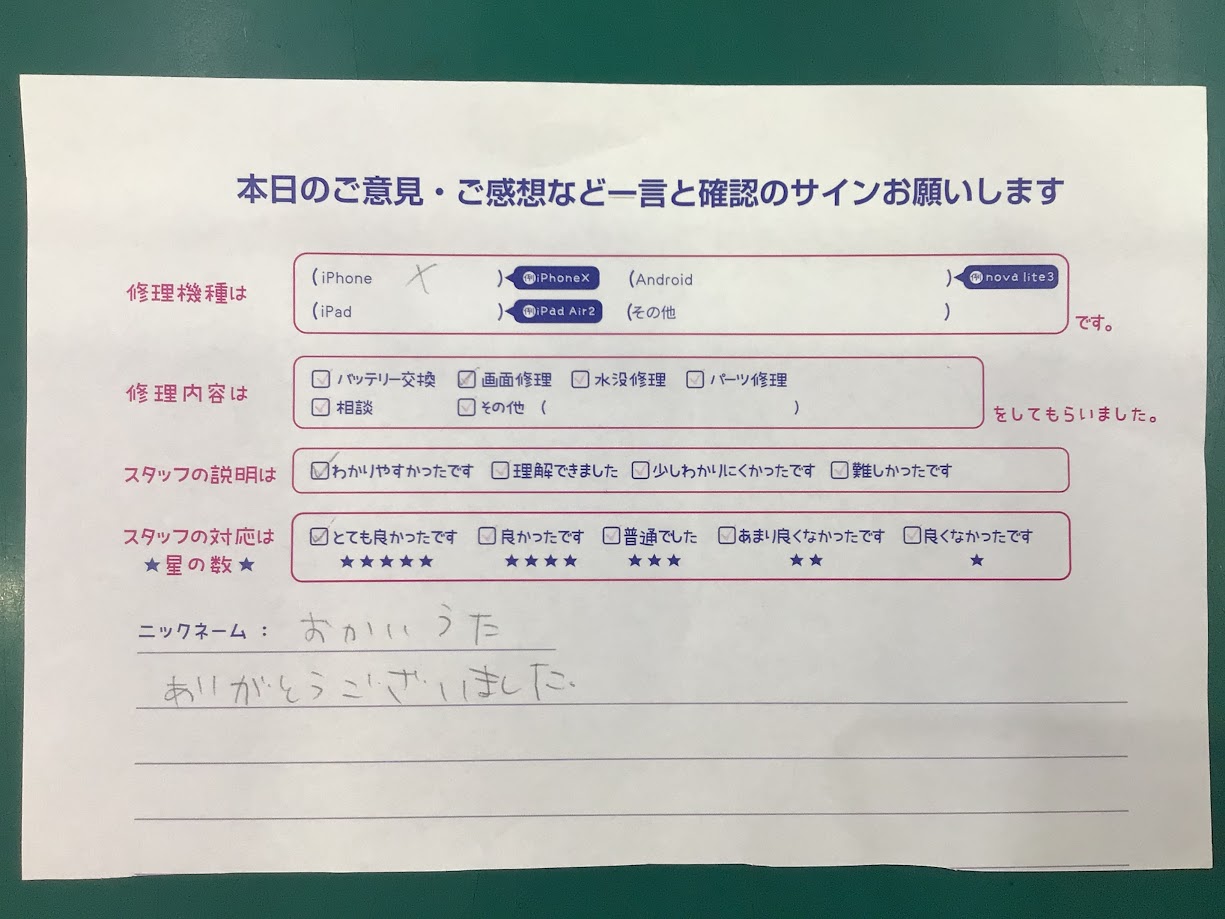 本日のご意見・ご感想など一言と確認のサインお願いします
修理機種は (iPhone X ) 例iPhoneX (Android ) 例nova lite3
(iPad ) 例iPad Air2 (その他 ) です。
修理内容は バッテリー交換 画面修理 水没修理 パーツ修理
相談 その他 ( ) をしてもらいました。
スタッフの説明は わかりやすかったです 理解できました 少しわかりにくかったです 難しかったです
スタッフの対応は とても良かったです 良かったです 普通でした あまり良くなかったです 良くなかったです
★星の数★ ★★★★★ ★★★★ ★★★ ★★ ★
ニックネーム： おかいうた
ありがとうございました.